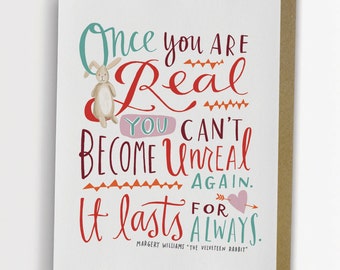 Once YOU ARE
Real
YOU CAN'T
BECOME Unreal
AGAIN.
It lasts FOR
ALWAYS.
MARGERY WILLIAMS "THE VELVETEEN RABBIT"